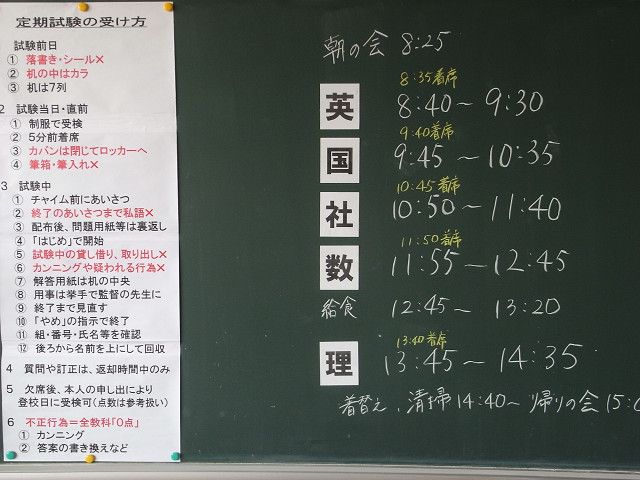 定期試験の受け方
試験前日
① 落書き・シール×
② 机の中はカラ
③ 机は7列
2 試験当日・直前
① 制服で受検
② 5分前着席
③ カバンは閉じてロッカーへ
④ 筆箱・筆入れ×
3 試験中
① チャイム前にあいさつ
② 終了のあいさつまで私語×
③ 配布後、問題用紙等は裏返し
④ 「はじめ」で開始
⑤ 試験中の貸し借り、取り出し×
⑥ カンニングや疑われる行為×
⑦ 解答用紙は机の中央
⑧ 用事は挙手で監督の先生に
⑨ 終了まで見直す
⑩ 「やめ」の指示で終了
⑪ 組・番号・氏名等を確認
⑫ 後ろから名前を上にして回収
4 質問や訂正は、返却時間中のみ
5 欠席後、本人の申し出により
登校日に受検可(点数は参考扱い)
6 不正行為=全教科「0点」
① カンニング
② 答案の書き換えなど
朝の会 8:25
8:35着席
英 8:40~9:30
9:40着席
国 9:45~10:35
10:45着席
社 10:50~11:40
11:50着席
数 11:55~12:45
給食 12:45~13:20
13:40着席
理 13:45~14:35
着替え、清掃14:40~帰りの会15:0